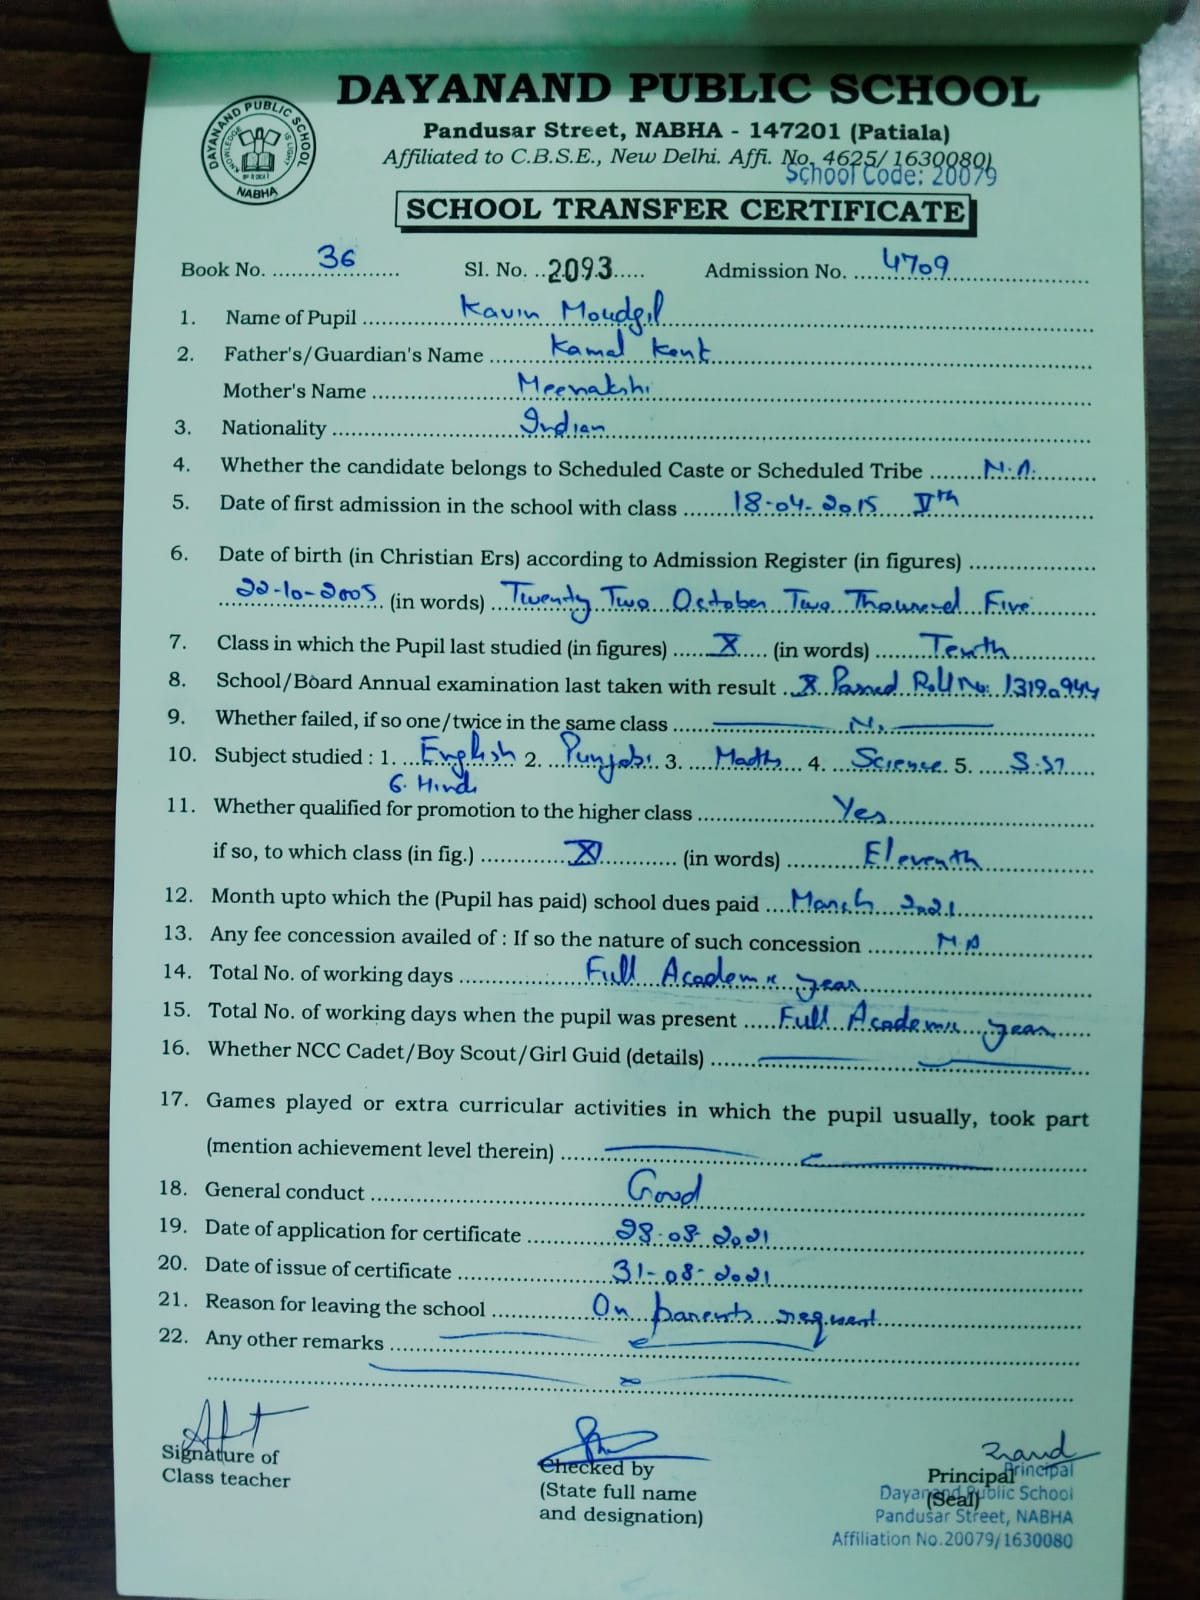 DAYANAND PUBLIC SCHOOL
DAYANAND PUBLIC SCHOOL
KNOWLEDGE IS LIGHT
NABHA
Pandusar Street, NABHA - 147201 (Patiala)
Affiliated to C.B.S.E., New Delhi. Affi. No. 4625/1630080)
School Code: 20079
SCHOOL TRANSFER CERTIFICATE
Book No. 36 Sl. No. 2093 Admission No. 4709
1. Name of Pupil Kavin Moudgil
2. Father's/Guardian's Name Kamal Kant
Mother's Name Meenakshi
3. Nationality Indian
4. Whether the candidate belongs to Scheduled Caste or Scheduled Tribe N.A.
5. Date of first admission in the school with class 18-04-2015 Vth
6. Date of birth (in Christian Ers) according to Admission Register (in figures)
22-10-2005 (in words) Twenty Two October Two Thousand Five
7. Class in which the Pupil last studied (in figures) X (in words) Tenth
8. School/Board Annual examination last taken with result X Passed Roll No. 13190944
9. Whether failed, if so one/twice in the same class No
10. Subject studied : 1. English 2. Punjabi 3. Math 4. Science 5. S.St
6. Hindi
11. Whether qualified for promotion to the higher class Yes
if so, to which class (in fig.) XI (in words) Eleventh
12. Month upto which the (Pupil has paid) school dues paid March 2021
13. Any fee concession availed of : If so the nature of such concession N.A
14. Total No. of working days Full Academic year
15. Total No. of working days when the pupil was present Full Academic year
16. Whether NCC Cadet/Boy Scout/Girl Guid (details)
17. Games played or extra curricular activities in which the pupil usually, took part
(mention achievement level therein)
18. General conduct Good
19. Date of application for certificate 28-08-2021
20. Date of issue of certificate 31-08-2021
21. Reason for leaving the school On parents request
22. Any other remarks
Signature of
Class teacher
Checked by
(State full name
and designation)
Principal
(Seal)
Principal
Dayanand Public School
Pandusar Street, NABHA
Affiliation No.20079/1630080